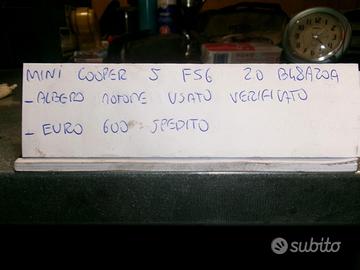 MINI COOPER S F56 2.0 B48A20A
- ALBERO MOTORE USATO VERIFICATO
- EURO 600 SPEDITO
subito